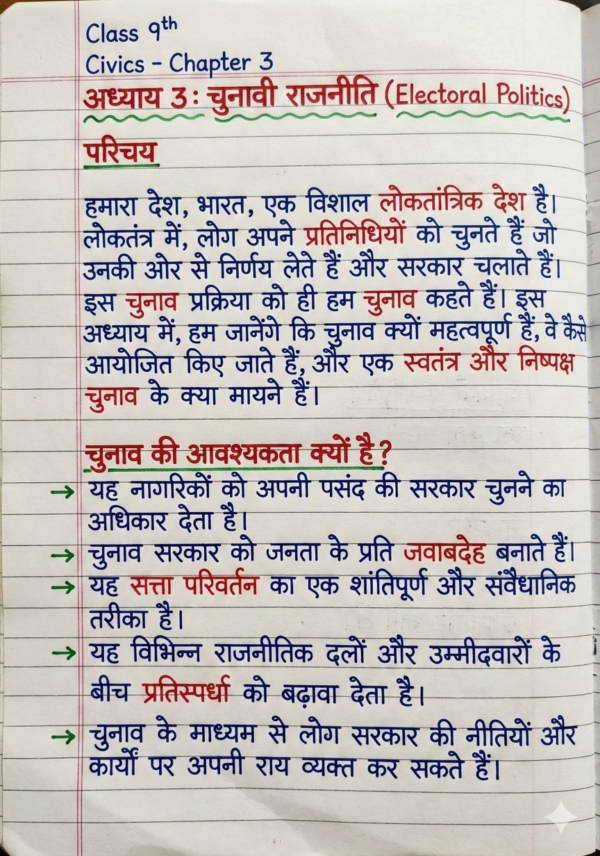 Class 9th
Civics - Chapter 3
अध्याय 3: चुनावी राजनीति (Electoral Politics)
परिचय
हमारा देश, भारत, एक विशाल लोकतांत्रिक देश है।
लोकतंत्र में, लोग अपने प्रतिनिधियों को चुनते हैं जो
उनकी ओर से निर्णय लेते हैं और सरकार चलाते हैं।
इस चुनाव प्रक्रिया को ही हम चुनाव कहते हैं। इस
अध्याय में, हम जानेंगे कि चुनाव क्यों महत्वपूर्ण हैं, वे कैसे
आयोजित किए जाते हैं, और एक स्वतंत्र और निष्पक्ष
चुनाव के क्या मायने हैं।
चुनाव की आवश्यकता क्यों है?
→ यह नागरिकों को अपनी पसंद की सरकार चुनने का
अधिकार देता है।
→ चुनाव सरकार को जनता के प्रति जवाबदेह बनाते हैं।
→ यह सत्ता परिवर्तन का एक शांतिपूर्ण और संवैधानिक
तरीका है।
→ यह विभिन्न राजनीतिक दलों और उम्मीदवारों के
बीच प्रतिस्पर्धा को बढ़ावा देता है।
→ चुनाव के माध्यम से लोग सरकार की नीतियों और
कार्यों पर अपनी राय व्यक्त कर सकते हैं।